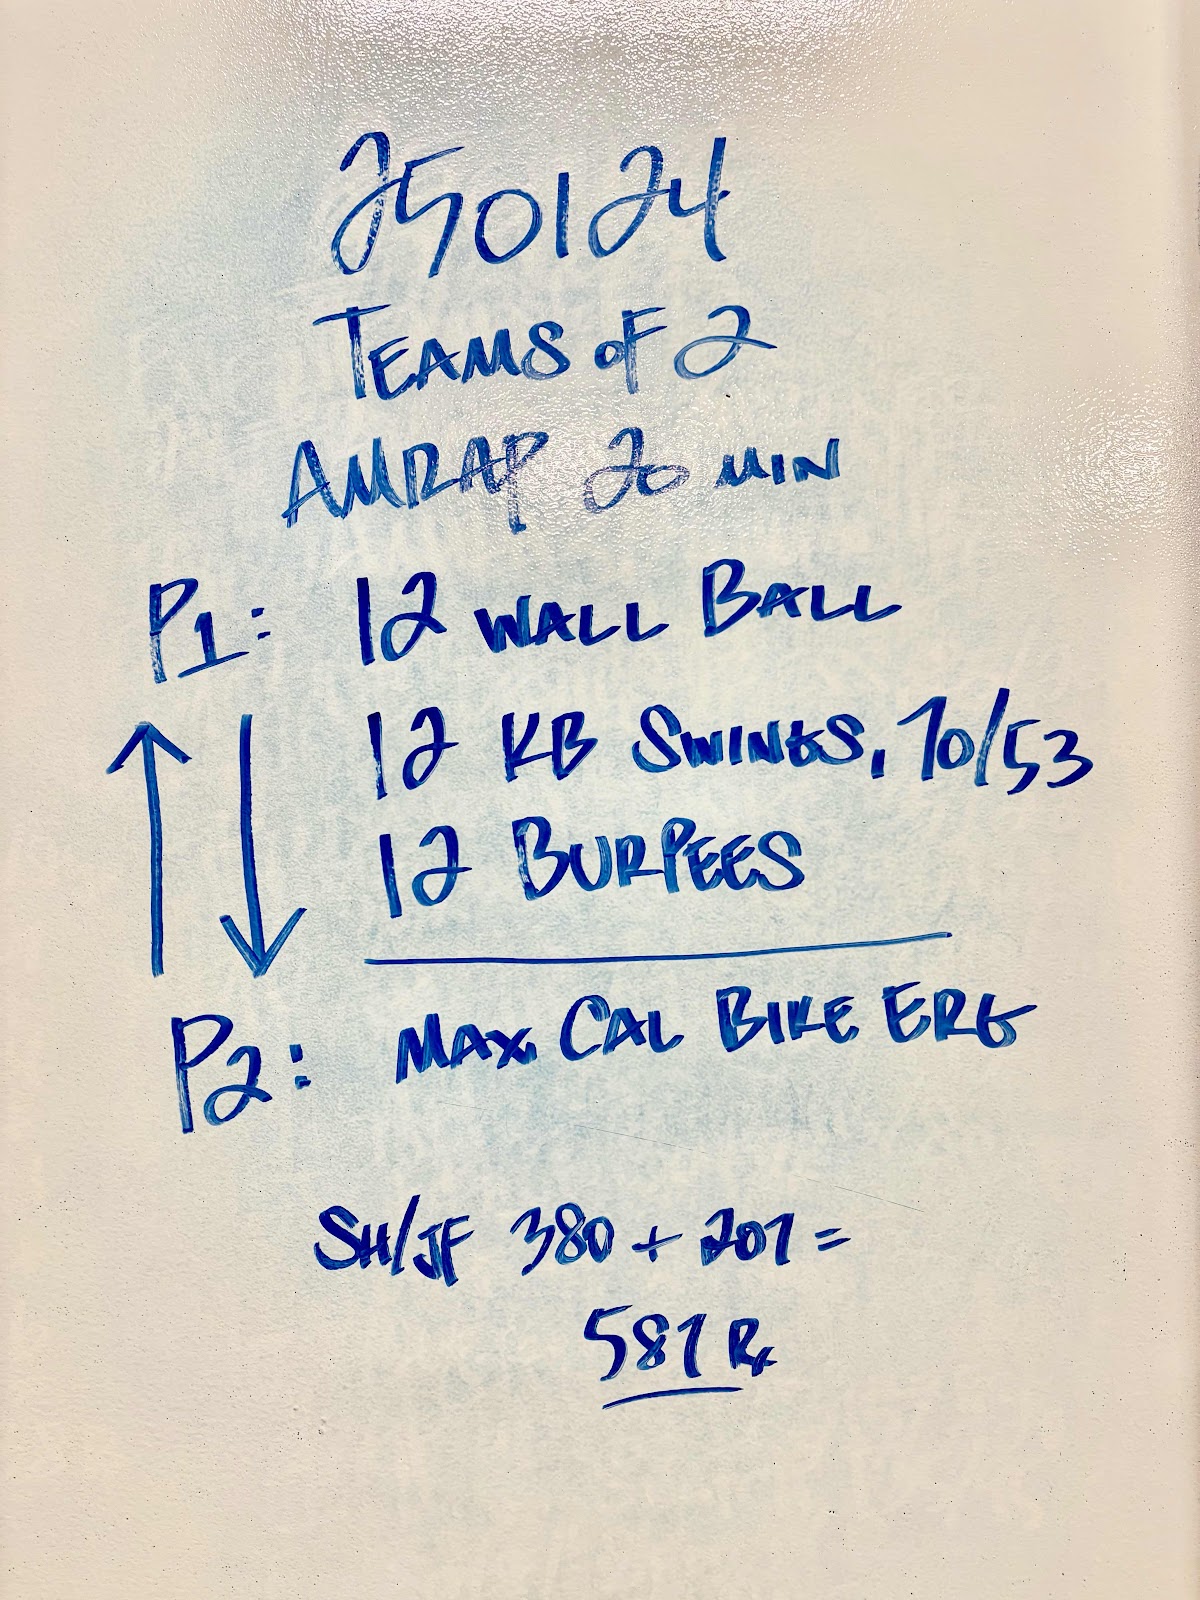 250124
TEAMS OF 2
AMRAP 20 MIN
P1: 12 WALL BALL
12 KB SWINGS, 70/53
12 BURPEES
P2: MAX CAL BIKE ERG
SH/JF 380 + 207 =
587 Rx